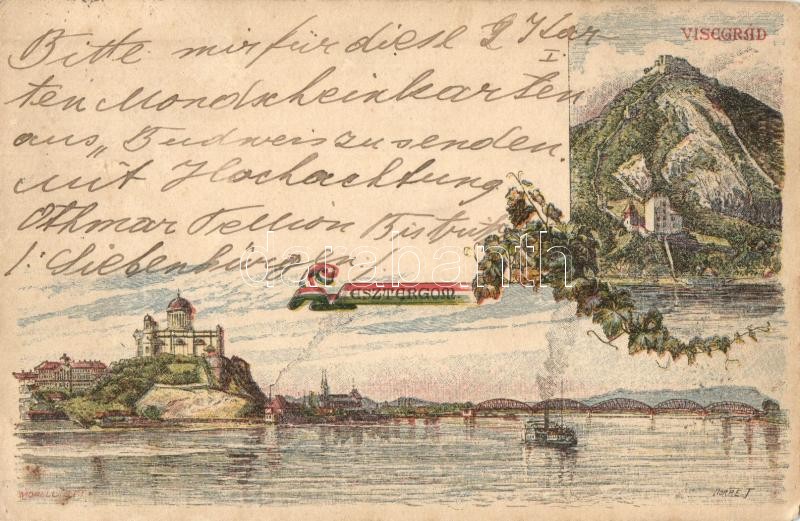 VISEGRÁD
Bitte mir für diese 2 Kar
I.
ten Mondscheinkarten
aus „Budweis zu senden.
Mit Hochachtung
Othmar Bistritz
/: Siebenbürgen /
darabanth
ESZTERGOM
MORELLI